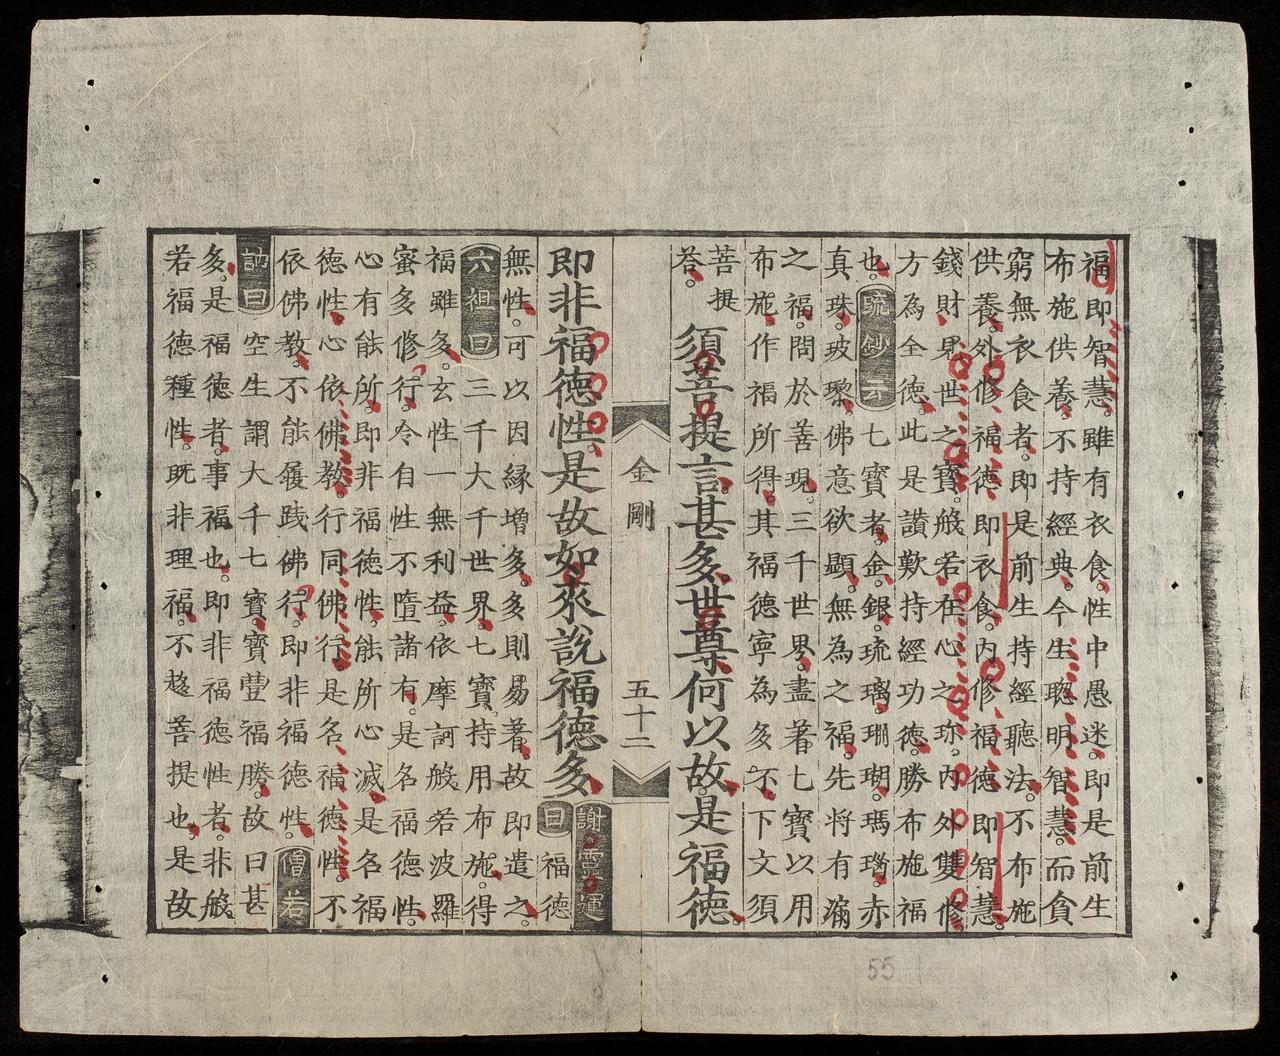 福即智慧。雖有衣食。性中愚迷。即是前生
布施供養。不持經典。今生聰明智慧。而貪
窮無衣食者。即是前生持經聽法。不布施
供養。外修福德即衣食。內修福德即智慧。
錢財。見世之寶。般若在心之珎。內外雙修。
方為全德。此是讃歎持經功德勝布施福
也。琉鈔云七寶者。金銀。琉璃。珊瑚。瑪瑙。赤
真珠。玻瓈。佛意欲顯。無為之福。先將有漏
之福。問於善現。三千世界。盡著七寶以用
布施。作福所得。其福德寧為多。不。下文須
菩提
荅。
須菩提言。甚多。世尊。何以故。是福德。
金剛
五十二
即非福德性。是故如來說福德多
謝靈運
曰
福德
無性。可以因縁增多。多則易著。故即遣之。
六祖曰三千大千世界。七寶持用布施。得
福雖多。玄性一無利益。依摩訶般若波羅
蜜多修行。令自性不墮諸有。是名福德性。
心有能所。即非福德性。能所心滅。是名福
德性。心依佛教。行同佛行。是名福德性。不
依佛教。不能履踐佛行。即非福德性。僧若
訥曰空生謂大千七寶。寶豐福勝。故曰甚
多。是福德者。事福也。即非福德性者。非般
若福德種性。旣非理福。不趍菩提也。是故
55